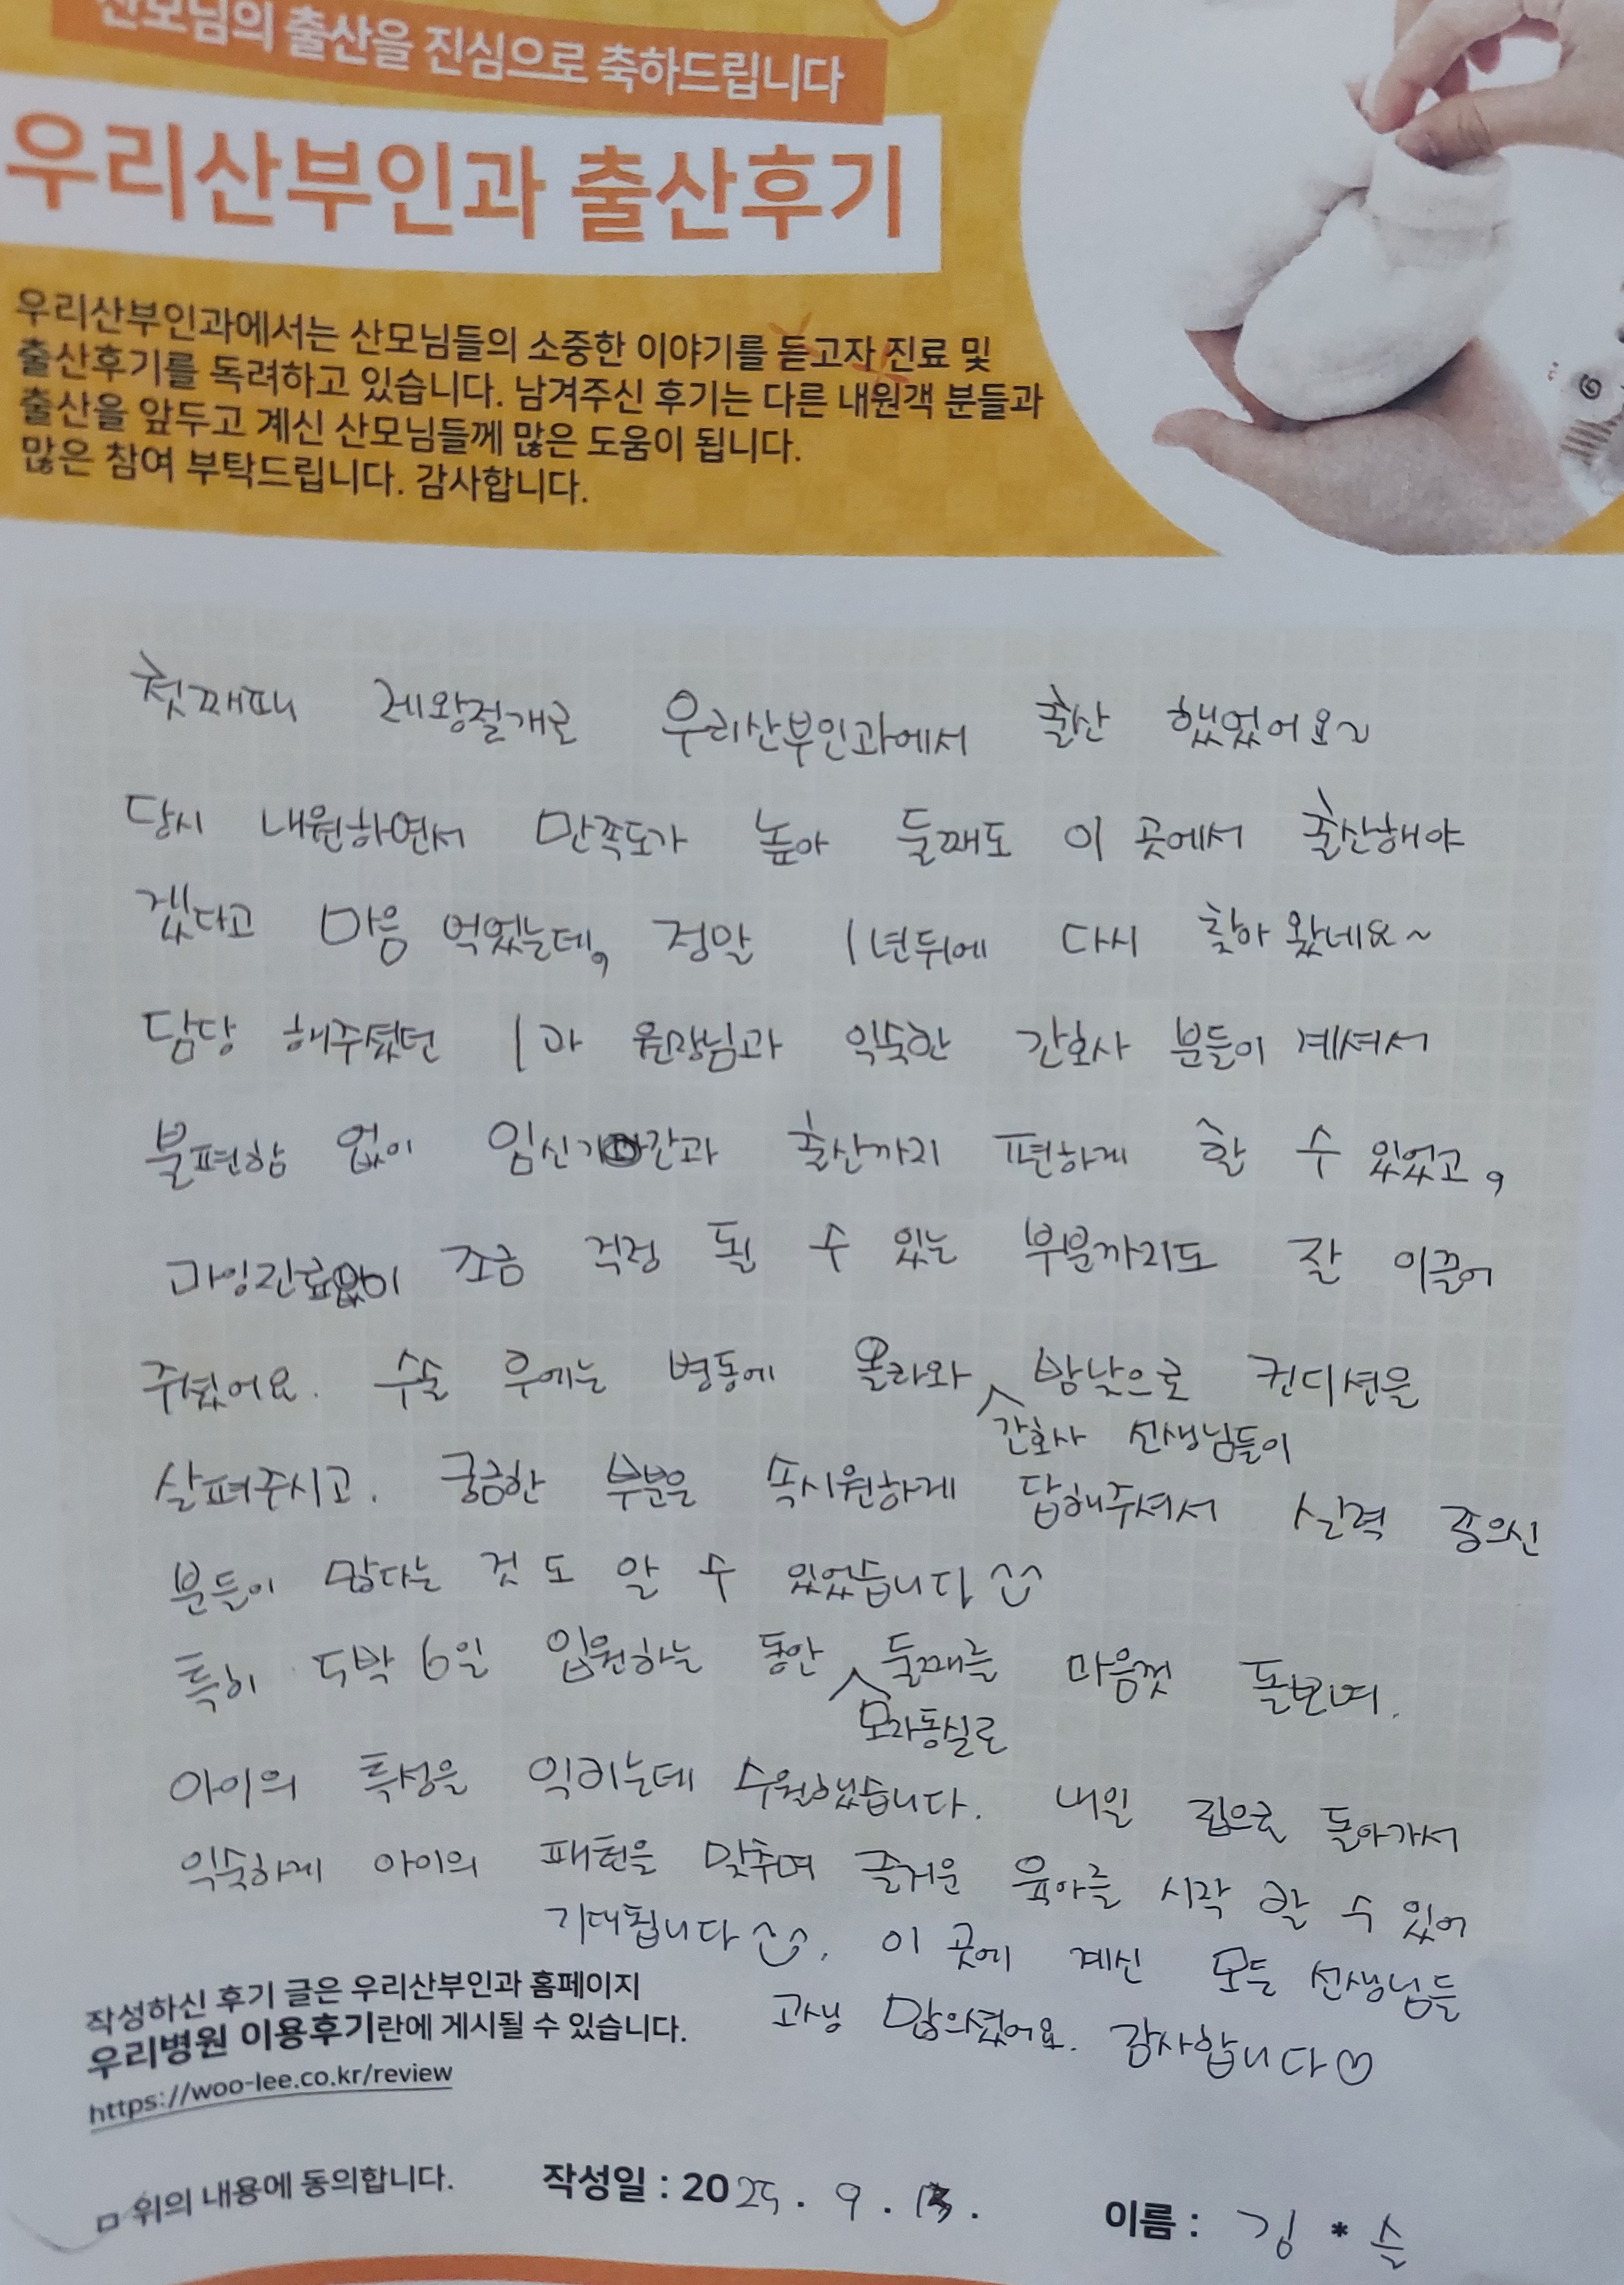 산모님의 출산을 진심으로 축하드립니다
우리산부인과 출산후기
우리산부인과에서는 산모님들의 소중한 이야기를 듣고자 진료 및
출산후기를 독려하고 있습니다. 남겨주신 후기는 다른 내원객 분들과
출산을 앞두고 계신 산모님들께 많은 도움이 됩니다.
많은 참여 부탁드립니다. 감사합니다.
첫째때 제왕절개로 우리산부인과에서 출산 했었어요~
당시 내원하면서 만족도가 높아 둘째도 이 곳에서 출산해야
겠다고 마음 먹었는데, 정말 1년뒤에 다시 찾아 왔네요~
담당 해주셨던 1과 원장님과 익숙한 간호사 분들이 계셔서
불편함 없이 임신기간과 출산까지 편하게 할 수 있었고,
과잉진료없이 조금 걱정 될 수 있는 부분까지도 잘 이끌어
주셨어요. 수술 후에는 병동에 올라와 밤낮으로 컨디션을
간호사 선생님들이
살펴주시고. 궁금한 부분을 속시원하게 답해주셔서 실력 좋으신
분들이 많다는 것도 알 수 있었습니다
특히 5박 6일 입원하는 동안 둘째를 마음껏 돌보며.
모자동실로
아이의 특성을 익히는데 수월했습니다. 내일 집으로 돌아가서
익숙하게 아이의 패턴을 맞추며 즐거운 육아를 시작 할 수 있어
기대됩니다. 이 곳에 계신 모든 선생님들
고생 많으셨어요. 감사합니다♡
작성하신 후기 글은 우리산부인과 홈페이지
우리병원 이용후기란에 게시될 수 있습니다.
https://woo-lee.co.kr/review
□ 위의 내용에 동의합니다. 작성일 : 2025. 9. 13. 이름 : 김 * 슬